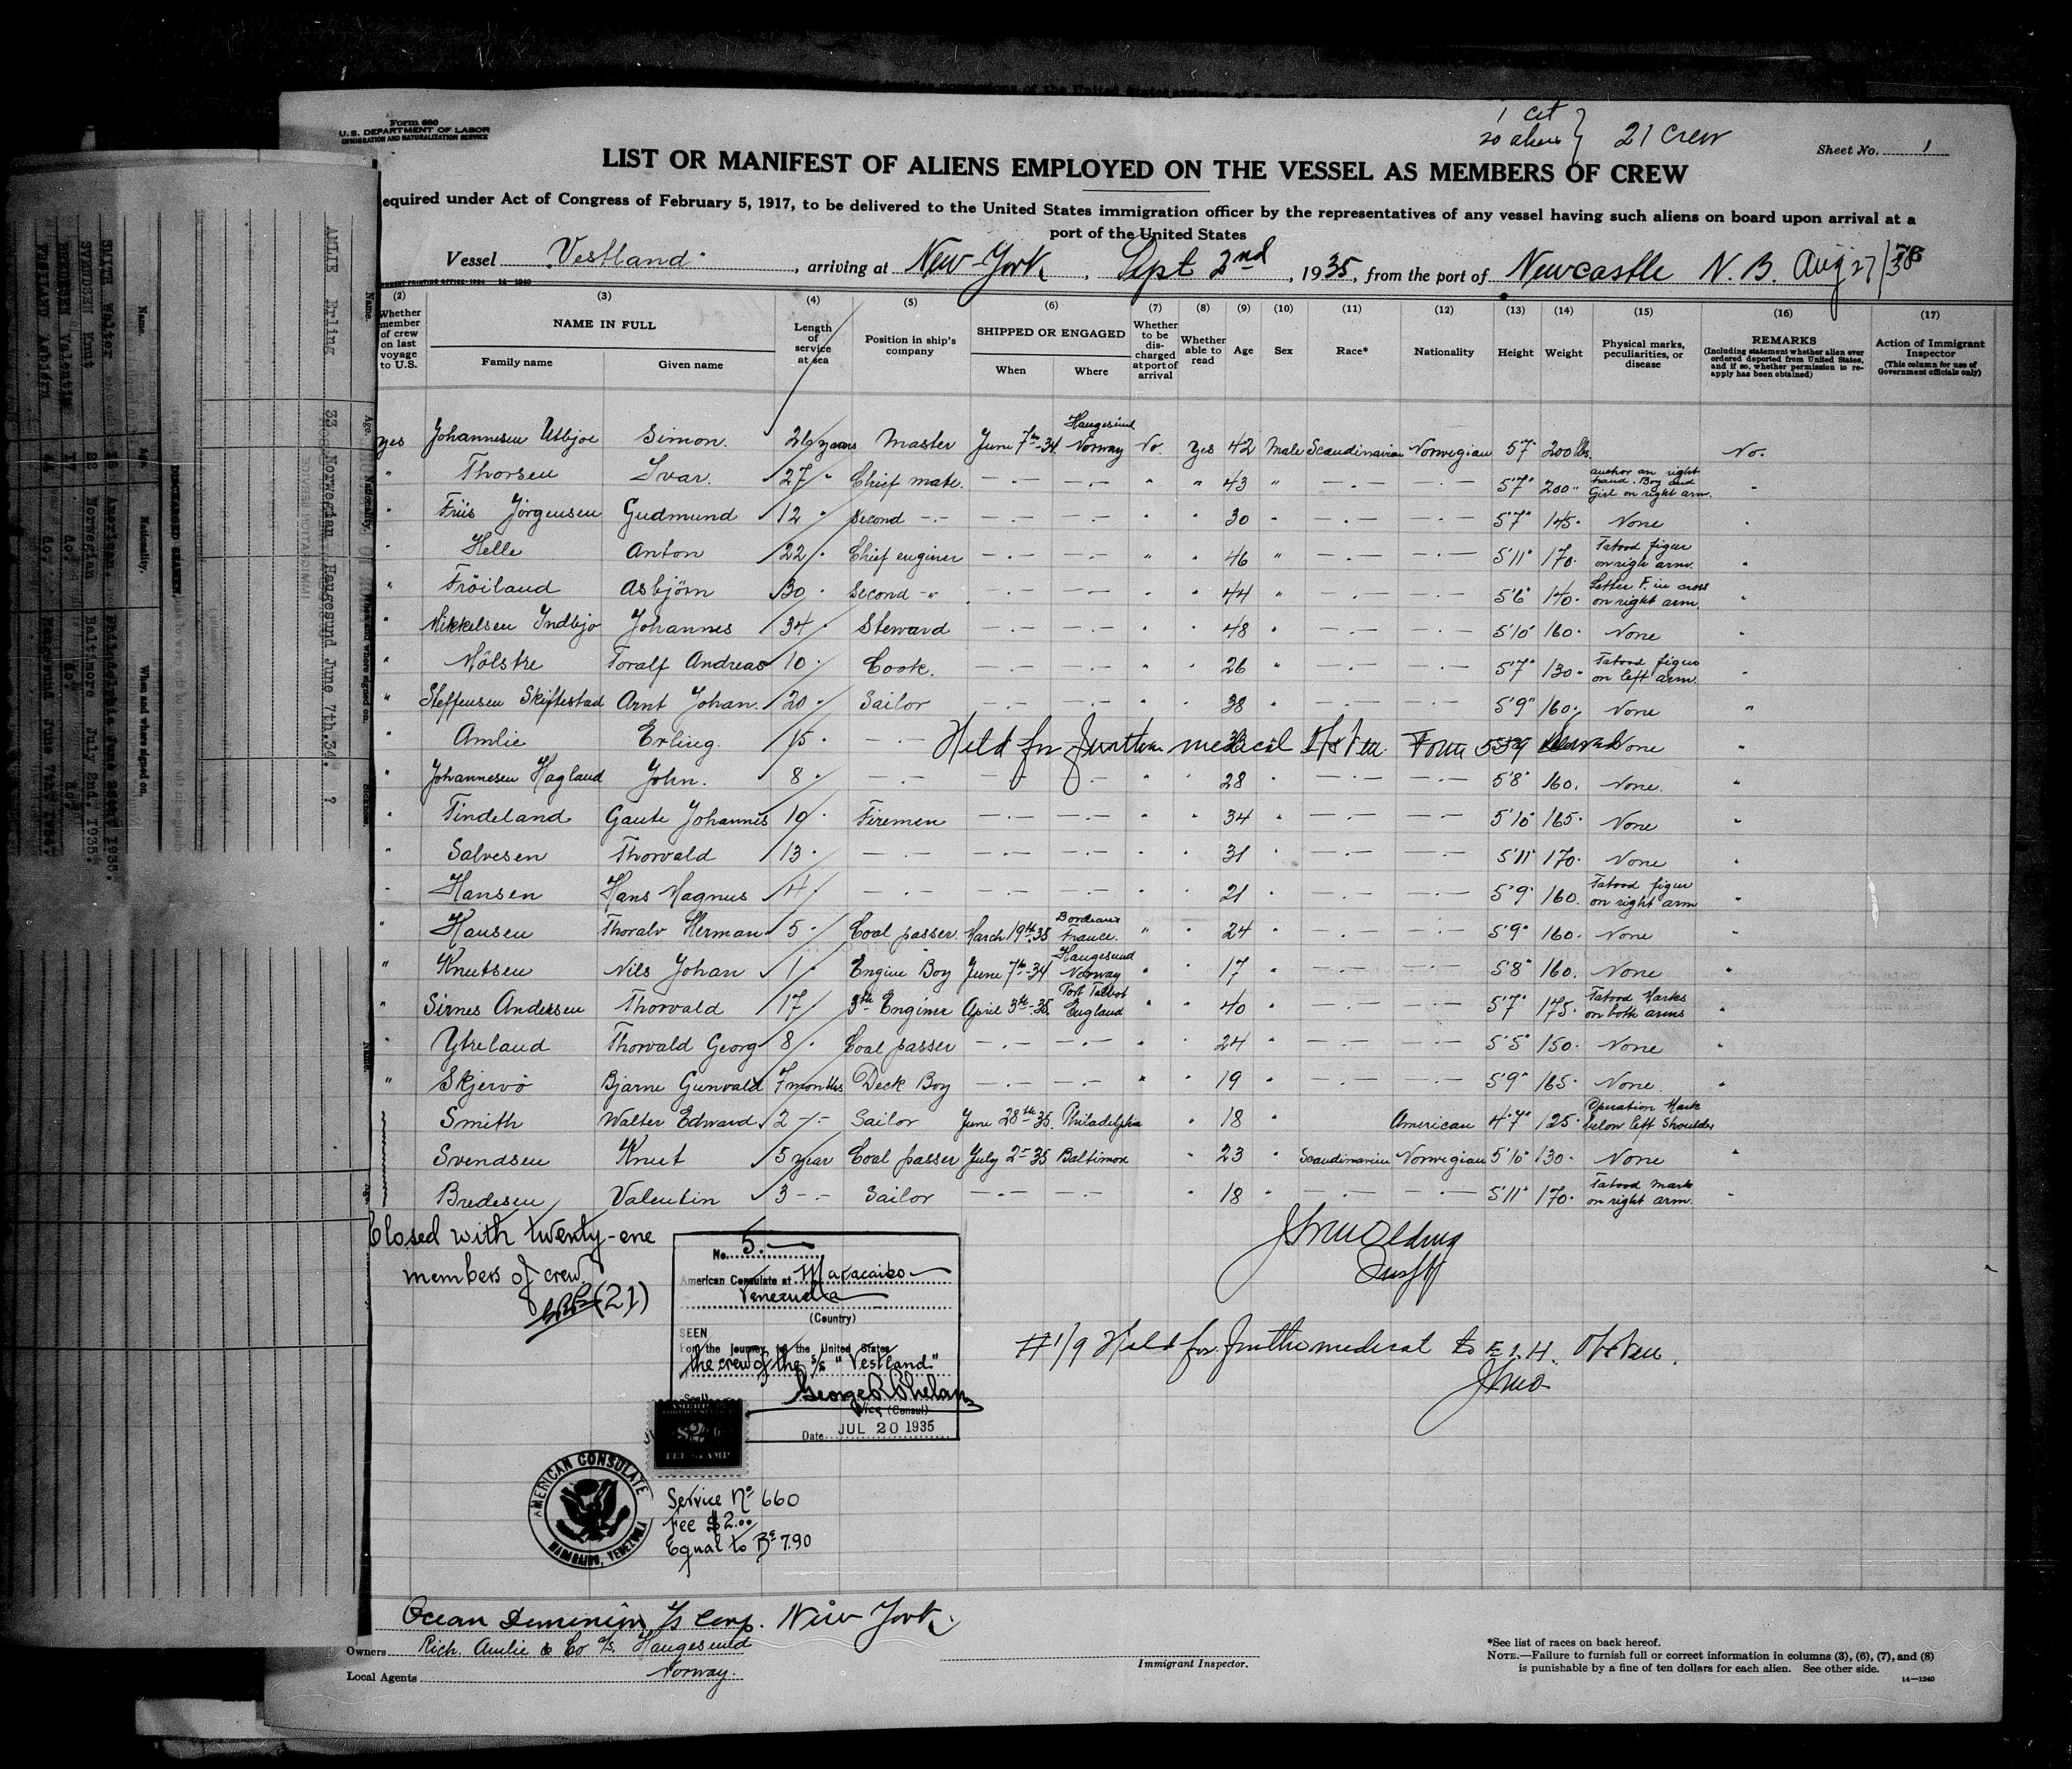 Form 680
U.S. DEPARTMENT OF LABOR
IMMIGRATION AND NATURALIZATION SERVICE
1 cit
20 aliens } 21 crew
Sheet No. 1
LIST OR MANIFEST OF ALIENS EMPLOYED ON THE VESSEL AS MEMBERS OF CREW
equired under Act of Congress of February 5, 1917, to be delivered to the United States immigration officer by the representatives of any vessel having such aliens on board upon arrival at a
port of the United States
Vessel Vestland, arriving at New York, Sept 2nd, 1935, from the port of Newcastle N.B. Aug 27/
(2) (3) (4) (5) (6) (7) (8) (9) (10) (11) (12) (13) (14) (15) (16) (17)
Whether member of crew on last voyage to U.S.
NAME IN FULL
Family name Given name
Length of service at sea
Position in ship's company
SHIPPED OR ENGAGED
When Where
Whether to be discharged at port of arrival
Whether able to read
Age
Sex
Race*
Nationality
Height
Weight
Physical marks, peculiarities, or disease
REMARKS
(Including statement whether alien ever ordered deported from United States, and if so, whether permission to reapply has been obtained)
Action of Immigrant Inspector
(This column for use of Government officials only)
yes Johannesen Utbjoe Simon. 26 years Master June 7th-34 Haugesund Norway No. Yes 42 Male Scandinavian Norwegian 5'7" 200 lbs. No.
" Thorsen Ivar. 27 " Chief mate. — — " " 43 " — — 5'7" 200 " anchor on right hand. Boy and Girl on right arm. "
" Friis Jörgensen Gudmund 12 " Second — — — " " 30 " — — 5'7" 145 " None "
" Helle Anton 22 " Chief enginer — — " " 46 " — — 5'11" 170 " Tatood figur on righ arm. "
" Fröiland Asbjörn 30 " Second — " — — " " 44 " — — 5'6" 140 " Letter F. in cross on right arm "
" Mikkelsen Indbjo Johannes 34 " Steward — — " " 48 " — — 5'10" 160 " None "
" Mölstre Toralf Andreas 10 " Cook. — — " " 26 " — — 5'7" 130 " Tatood figur on left arm. "
" Steffensen Skiftestad Arnt Johan. 20 " Sailor — — " " 38 " — — 5'9" 160 " None "
" Amlie Erling. 15 " — — Held for further medical Form 539 None "
" Johannesen Hagland John. 8 " — — — " " 28 " — — 5'8" 160 " None. "
" Tindeland Gaute Johannes 19 " Firemen — — " " 34 " — — 5'10" 165 " None "
" Salvesen Thorvald 13 " — — — " " 31 " — — 5'11" 170 " None "
" Hansen Hans Magnus 4 " — — — " " 21 " — — 5'9" 160 " Tatood figur on right arm "
" Hansen Thoralv Herman 5 " Coal passer. March 19th-35 Bordeaux France. " " 24 " — — 5'9" 160 " None "
" Knutsen Nils Johan 1 " Engine Boy June 7th-34 Haugesund Norway " " 17 " — — 5'8" 160 " None "
" Sirnes Andersen Thorvald 17 3th Enginer April 3th-35. Port Talbot England " " 40 " — — 5'7" 175 " Tatood Marks on both arms "
" Ytreland Thorvald Georg 8 " Coal passer — — " " 24 " — — 5'5" 150 " None "
" Skjervö Bjarne Gunvald 7 months Deck Boy — — " " 19 " — — 5'9" 165 " None. "
Smith Walter Edward 2 — Sailor June 28th-35. Philadelphia " 18 " American 4'7" 125 " Operation Mark below left Shoulder
Svendsen Knut 5 year Coal passer July 2-35 Baltimore " 23 " Scandinavian Norwegian 5'10" 130 " None "
Bredesen Valentin 3 — Sailor — — " 18 " — — 5'11" 170 " Tatood mark on right arm. "
Closed with twenty-one
members of crew.
(21)
No. 5.
American Consulate at Maracaibo
Venezuela
(Country)
SEEN
For the journey to the United States
the crew of the S/S "Vestland"
George R Phelan
Vice (Consul)
Date JUL 20 1935
FEE STAMP
AMERICAN CONSULATE
MARACAIBO, VENEZUELA
Service No 660
Fee $2.00
Equal to Bs 7.90
#1/9 Held for further medical to E.I.H.
Ocean Dominion SS Corp. New York.
Owners Rich. Amlie & Co A/S. Haugesund
Local Agents Norway.
Immigrant Inspector.
*See list of races on back hereof.
NOTE.—Failure to furnish full or correct information in columns (3), (6), (7), and (8)
is punishable by a fine of ten dollars for each alien. See other side.
14—1240
AMLIE Erling 33 Norwegian Haugesund June 7th.34. ?
DISCHARGED SEAMEN
Name. Age. Nationality. When and where signed on.
SMITH Walter
SVENDSEN Knut 22 Norwegian Baltimore July 2nd. 1935.
BREDESEN Valentin